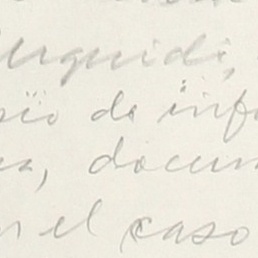 Urquidi,
io de info
as, docum
r el caso